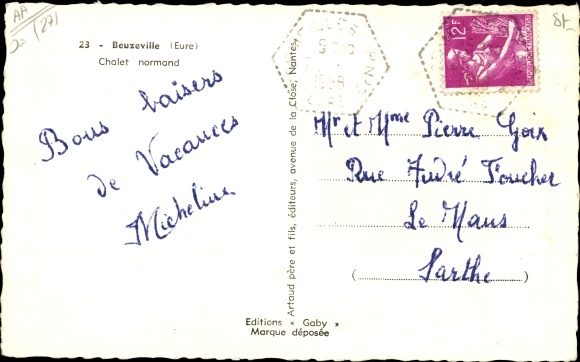 AA
(27)
23 - Beuzeville (Eure)
Chalet normand
Bons baisers
de Vacances
Micheline
Artaud père et fils, éditeurs, avenue de la Close, Nantes
Editions « Gaby »
Marque déposée
12F
Mr et Mme Pierre Goix
Rue André Foucher
Le Mans
(Sarthe)